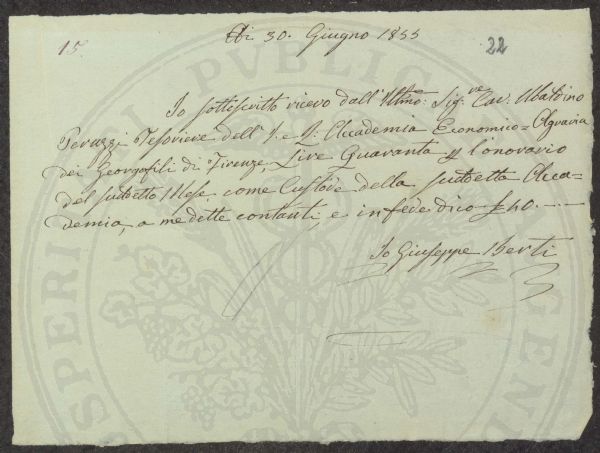 15
Adi 30. Giugno 1855
22
Io sottoscritto ricevo dall'Illmo: Sigre Cav. Ubaldino
Peruzzi Tesoriere dell'I. e R. Accademia Economico=Agraria
dei Georgofili di Firenze, Lire Quaranta p l'onorario
del sudetto Mese come Custode della sudetta Acca-
demia, a me dette contanti, e in fede dico £ 40.----
Io Giuseppe Berti
PROSPERITATI PUBLICAE AUGENDAE